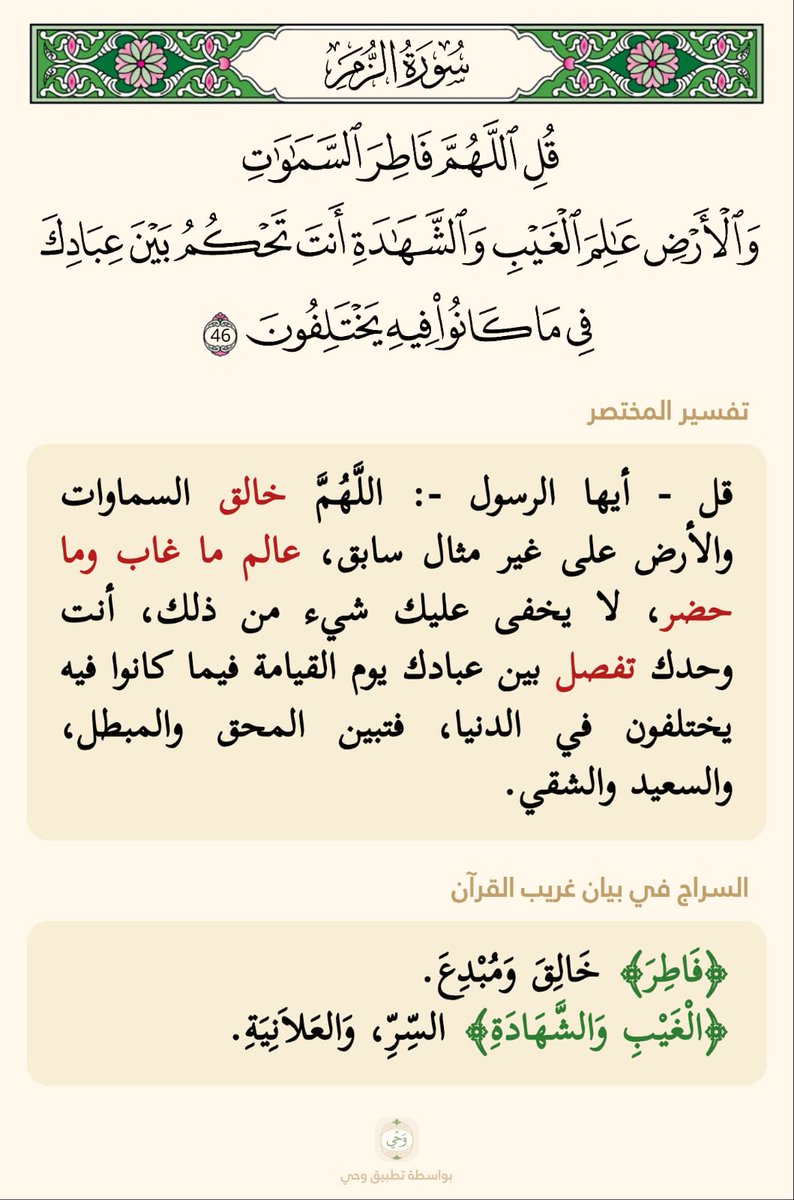 سُورَةُ الزُّمَرِ
قُلِ ٱللَّهُمَّ فَاطِرَ ٱلسَّمَٰوَٰتِ
وَٱلۡأَرۡضِ عَٰلِمَ ٱلۡغَيۡبِ وَٱلشَّهَٰدَةِ أَنتَ تَحۡكُمُ بَيۡنَ عِبَادِكَ
فِي مَا كَانُواْ فِيهِ يَخۡتَلِفُونَ 46
تفسير المختصر
قل - أيها الرسول -: اللَّهُمَّ خالق السماوات
والأرض على غير مثال سابق، عالم ما غاب وما
حضر، لا يخفى عليك شيء من ذلك، أنت
وحدك تفصل بين عبادك يوم القيامة فيما كانوا فيه
يختلفون في الدنيا، فتبين المحق والمبطل،
والسعيد والشقي.
السراج في بيان غريب القرآن
﴿فَاطِرَ﴾ خَالِقَ وَمُبْدِعَ.
﴿الْغَيْبِ وَالشَّهَادَةِ﴾ السِّرِّ، وَالعَلاَنِيَةِ.
وَحْي
بواسطة تطبيق وحي